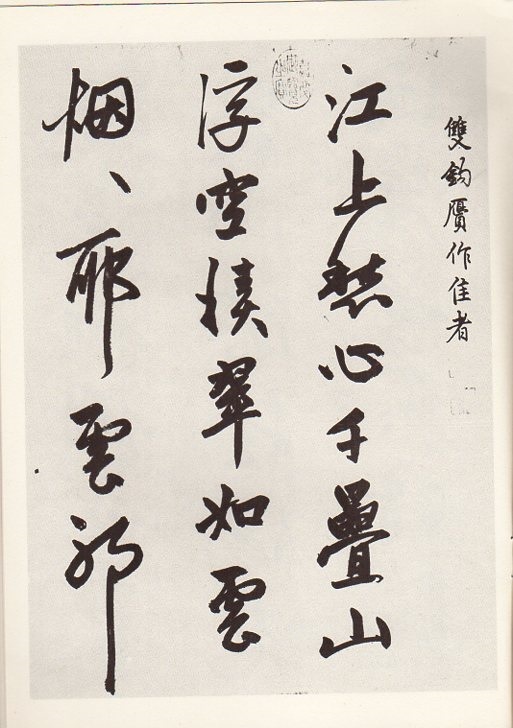 雙鈎贋作佳者
江上愁心千疊山
浮空積翠如雲
烟、耶雲耶